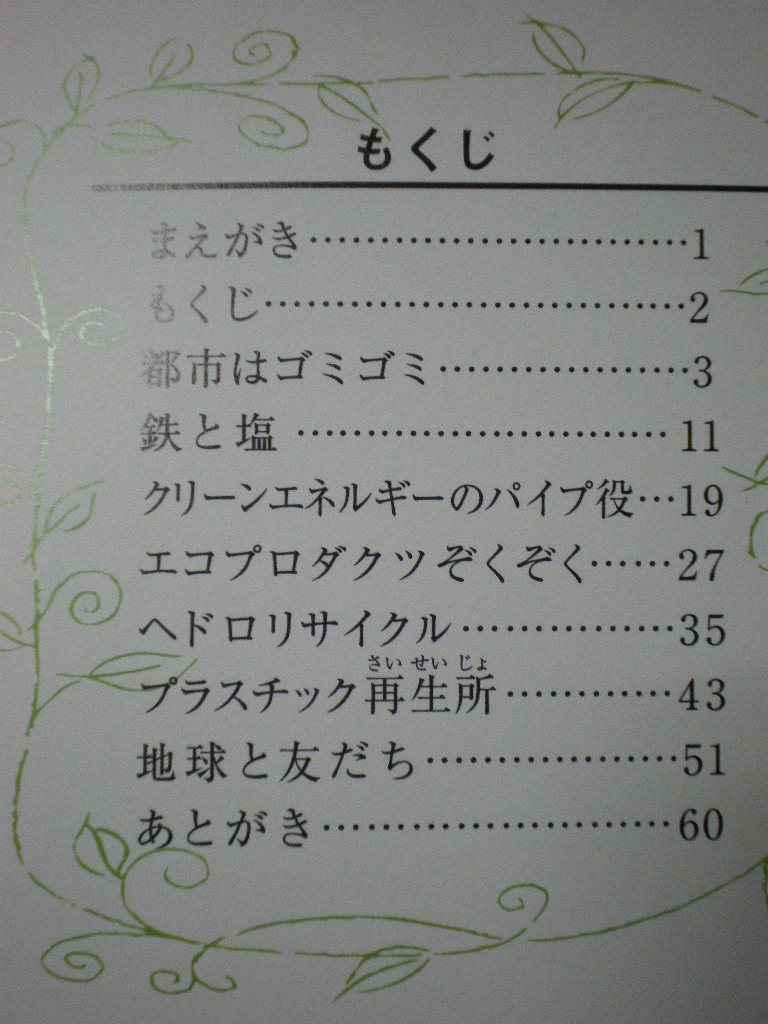 もくじ
まえがき…………………………1
もくじ……………………………2
都市はゴミゴミ…………………3
鉄と塩 …………………………11
クリーンエネルギーのパイプ役…19
エコプロダクツぞくぞく……27
ヘドロリサイクル………………35
さい せい じょ
プラスチック再生所……………43
地球と友だち……………………51
あとがき…………………………60